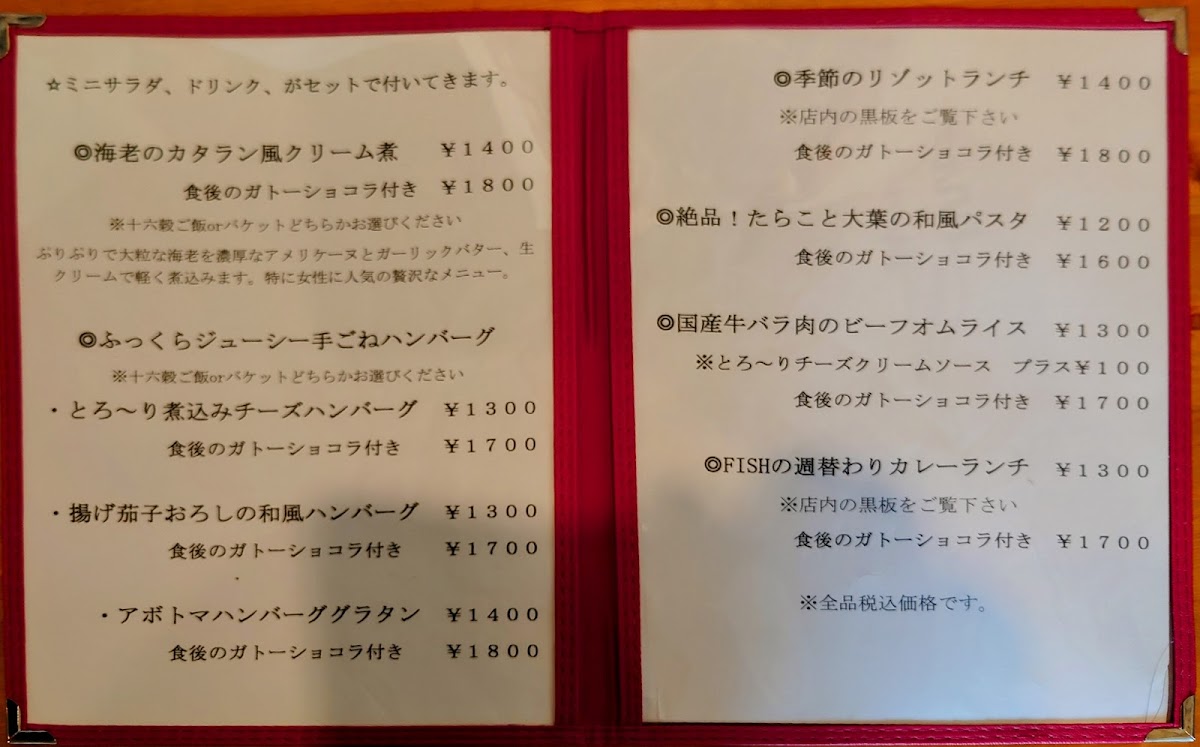 ☆ミニサラダ、ドリンク、がセットで付いてきます。
◎海老のカタラン風クリーム煮 ￥１４００
食後のガトーショコラ付き ￥１８００
※十六穀ご飯orバケットどちらかお選びください
ぷりぷりで大粒な海老を濃厚なアメリケーヌとガーリックバター、生
クリームで軽く煮込みます。特に女性に人気の贅沢なメニュー。
◎ふっくらジューシー手ごねハンバーグ
※十六穀ご飯orバケットどちらかお選びください
・とろ～り煮込みチーズハンバーグ ￥１３００
食後のガトーショコラ付き ￥１７００
・揚げ茄子おろしの和風ハンバーグ ￥１３００
食後のガトーショコラ付き ￥１７００
・アボトマハンバーググラタン ￥１４００
食後のガトーショコラ付き ￥１８００
◎季節のリゾットランチ ￥１４００
※店内の黒板をご覧下さい
食後のガトーショコラ付き ￥１８００
◎絶品！たらこと大葉の和風パスタ ￥１２００
食後のガトーショコラ付き ￥１６００
◎国産牛バラ肉のビーフオムライス ￥１３００
※とろ～りチーズクリームソース プラス￥１００
食後のガトーショコラ付き ￥１７００
◎FISHの週替わりカレーランチ ￥１３００
※店内の黒板をご覧下さい
食後のガトーショコラ付き ￥１７００
※全品税込価格です。